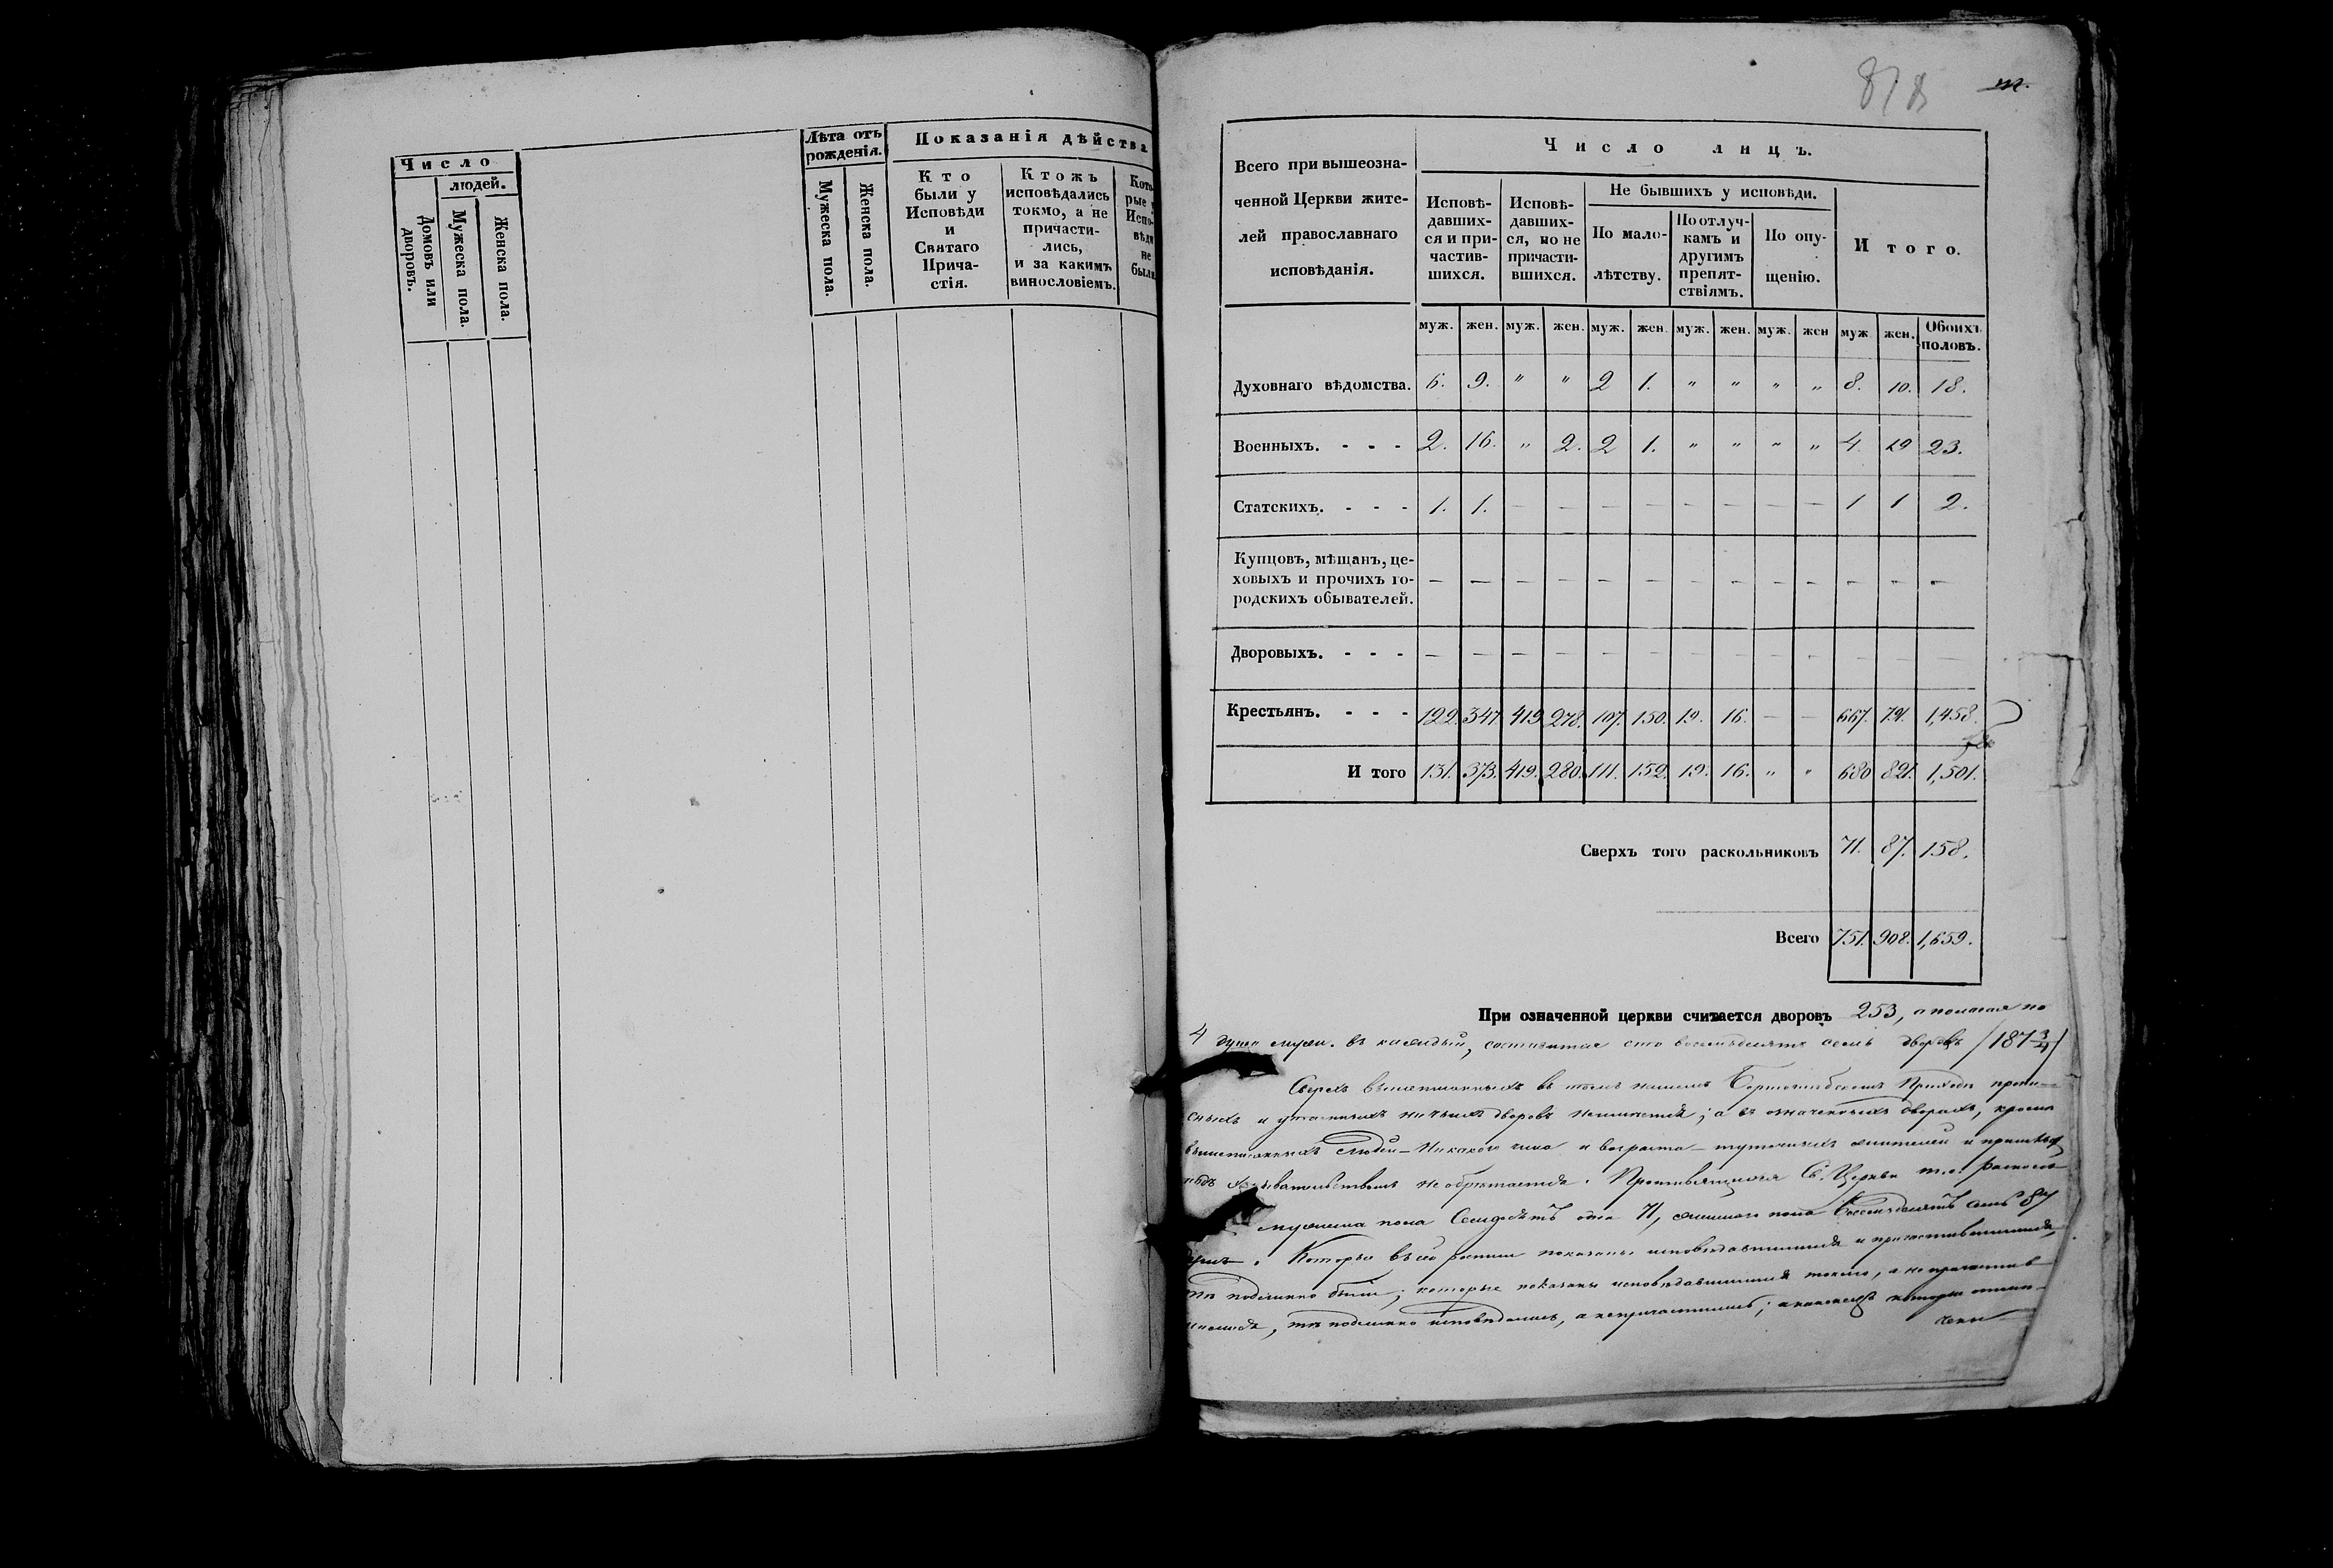 Число
людей.
Домовъ или дворовъ.
Мужеска пола.
Женска пола.
Лѣта отъ
рожденія.
Мужеска пола.
Женска пола.
Показанія дѣйства
Кто
были у
Исповѣди
и
Святаго
Прича-
стія.
Ктожъ
исповѣдались
токмо, а не
причасти-
лись,
и за какимъ
винословіемъ.
Кото-
рые у
Испо-
вѣди
не
были
878
Всего при вышеозна-
ченной Церкви жите-
лей православнаго
исповѣданія.
Число лицъ.
Исповѣ-
давших-
ся и при-
частив-
шихся.
Исповѣ-
давших-
ся, но не
причасти-
вшихся.
Не бывшихъ у исповѣди.
По мало-
лѣтству.
По отлуч-
камъ и
другимъ
препят-
ствіямъ.
По опу-
щенію.
Итого.
муж. жен. муж. жен. муж. жен. муж. жен. муж. жен муж жен. Обоихъ половъ.
Духовнаго вѣдомства. 6. 9. " " 2 1. " " " " 8. 10. 18.
Военныхъ. - - - 2. 16. " 2. 2 1. " " " " 4 19 23.
Статскихъ. - - - 1. 1. — — — — — — — — 1 1 2.
Купцовъ, мѣщанъ, це-
ховыхъ и прочихъ го-
родскихъ обывателей. — — — — — — — — — — — — —
Дворовыхъ. - - - — — — — — — — — — — — — —
Крестьянъ. - - - 122. 347 419 278. 107. 150. 19. 16. — — 667. 791. 1,458.
И того 131. 373. 419. 280. 111. 152. 19. 16. " " 680 821. 1,501.
Сверхъ того раскольниковъ 71. 87. 158.
Всего 751. 908. 1,659.
При означенной церкви считается дворовъ 253, а полагая по
4 души муж. въ каждый, составится сто восемьдесятъ семь дворовъ /187 3/4/
Сверхъ вышеписанныхъ въ томъ нашемъ Приходѣ пропи-
сныхъ и утаенныхъ ничьихъ дворовъ неимѣется; а въ означенныхъ дворахъ, кромѣ
вышеписанныхъ людей – никакого чина и возраста – тутошнихъ жителей и пришлыхъ
необрѣтается. Противящихся Св. Церкви т.е. расколь-
мужеска пола Семдесятъ одна 71, женскаго пола восемдесятъ семь 87
душъ. Которые въ сей росписи показаны исповѣдавшимися и причастившимися,
тѣ подлинно были; которые показаны исповѣдавшимися токмо, а не причастив-
шимися, тѣ подлинно исповѣдались, а непричастились; а которые отмѣ-
чены